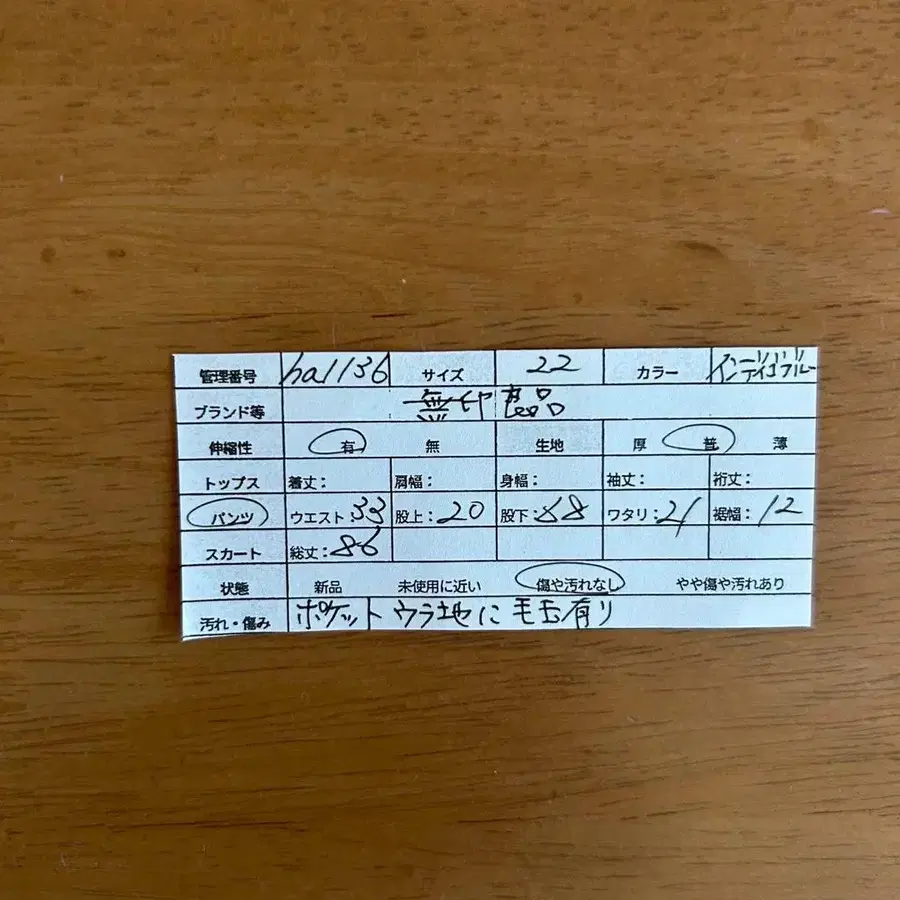 管理番号 ha1136 サイズ 22 カラー インディゴブルー
ブランド等 無印良品
伸縮性 有 無 生地 厚 普 薄
トップス 着丈： 肩幅： 身幅： 袖丈： 裄丈：
パンツ ウエスト：33 股上：20 股下：68 ワタリ：21 裾幅：12
スカート 総丈：86
状態 新品 未使用に近い 傷や汚れなし やや傷や汚れあり
汚れ・傷み ポケットウラ地に毛玉有り